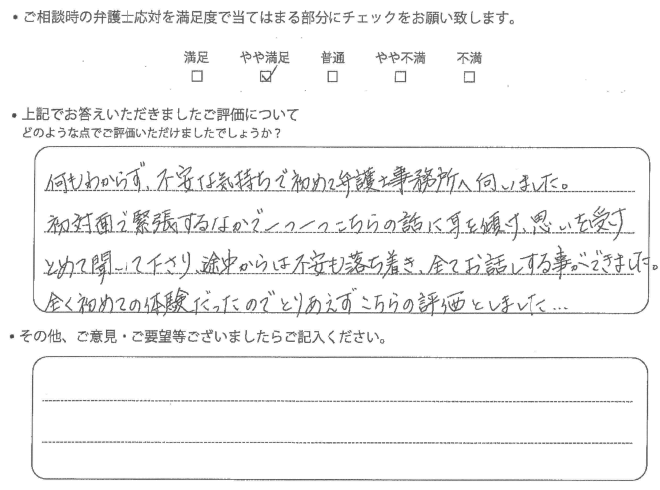 ・ご相談時の弁護士応対を満足度で当てはまる部分にチェックをお願い致します。
満足 やや満足 普通 やや不満 不満
□ ☑ □ □ □
・上記でお答えいただきましたご評価について
どのような点でご評価いただけましたでしょうか？
何もわからず、不安な気持ちで初めて弁護士事務所へ伺いました。
初対面で緊張するなかで一つ一つこちらの話に耳を傾け、思いを受け
とめて聞いて下さり、途中からは不安も落ち着き、全てお話しする事ができました。
全く初めての体験だったのでとりあえずこちらの評価としました…
・その他、ご意見・ご要望等ございましたらご記入ください。